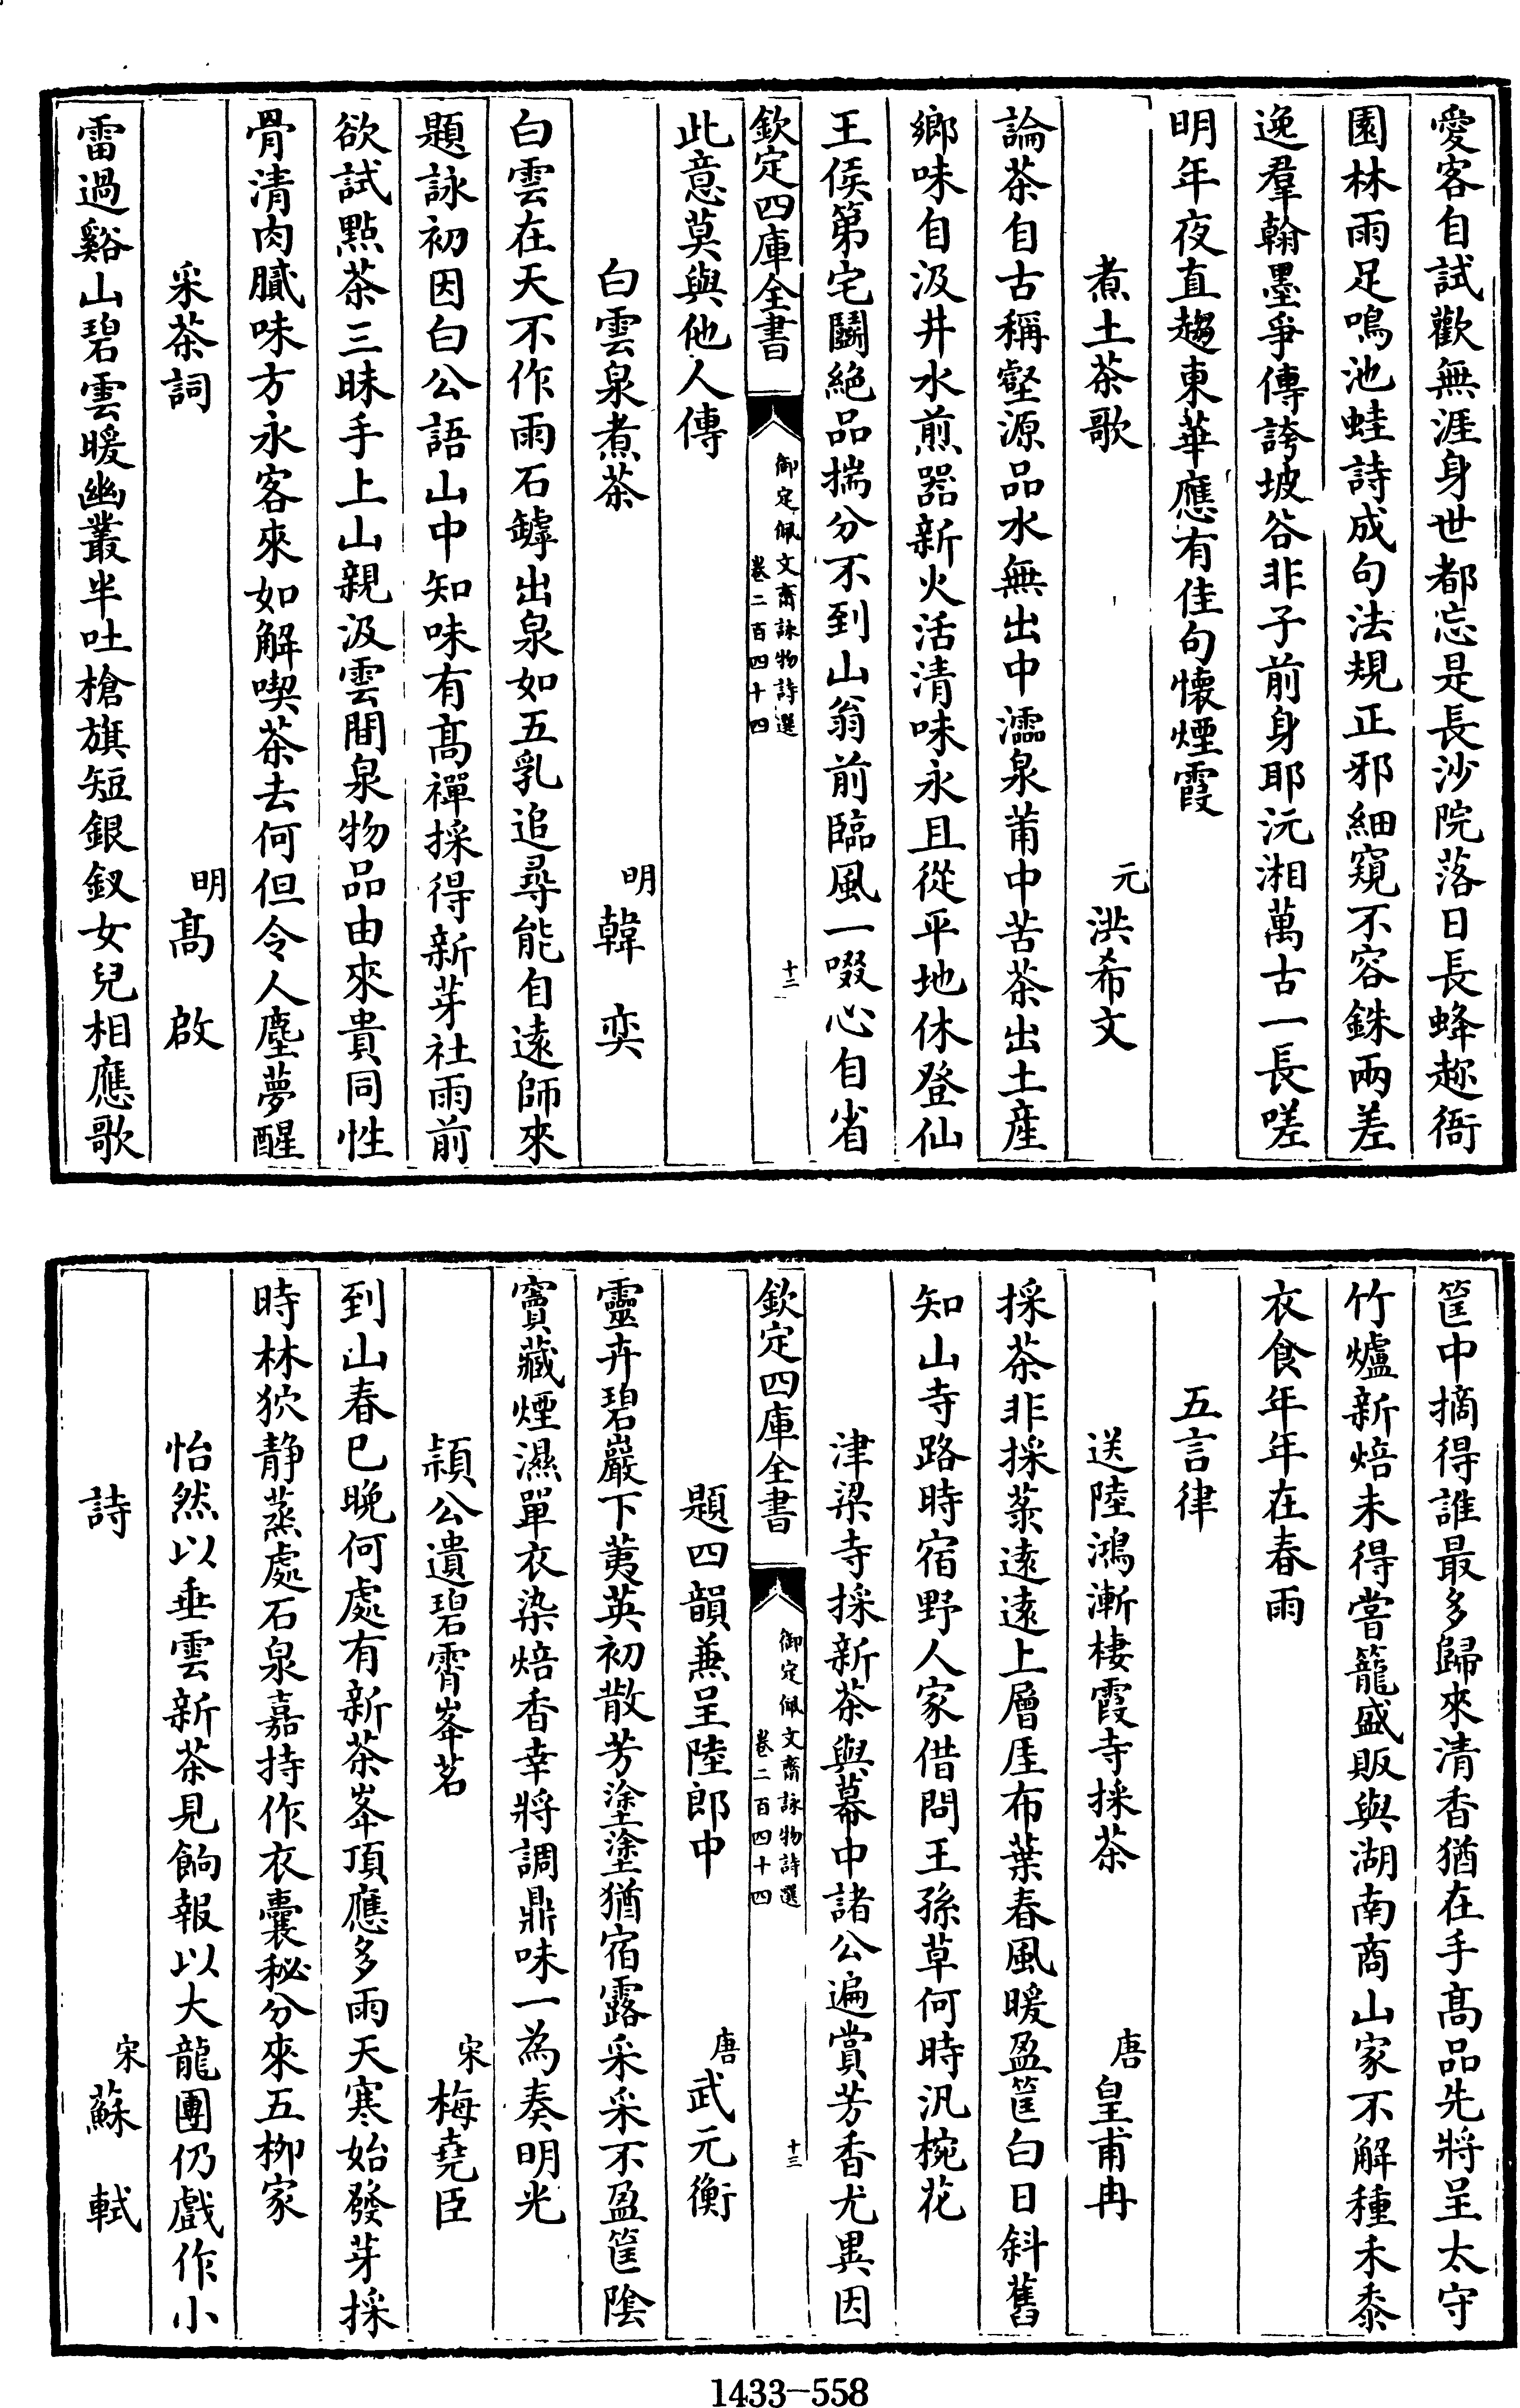 愛客自試歡無涯身世都忘是長沙院落日長蜂趂衙
園林雨足鳴池蛙詩成句法規正邪細窺不容銖兩差
逸羣翰墨爭傳誇坡谷非子前身耶沅湘萬古一長嗟
明年夜直趨東華應有佳句懷煙霞
煮土茶歌 元洪希文
論茶自古稱壑源品水無出中濡泉莆中苦茶出土産
鄉味自汲井水煎器新火活清味永且從平地休登仙
王侯第宅鬬絶品揣分不到山翁前臨風一啜心自省
欽定四庫全書
御定佩文齋詠物詩選
卷二百四十四
十二
此意莫與他人傳
白雲泉煮茶 明韓奕
白雲在天不作雨石罅出泉如五乳追尋能自遠師來
題詠初因白公語山中知味有髙禪採得新芽社雨前
欲試點茶三昧手上山親汲雲間泉物品由來貴同性
骨清肉膩味方永客來如解喫茶去何但令人塵夢醒
采茶詞 明髙啟
雷過谿山碧雲暖幽叢半吐槍旗短銀釵女兒相應歌
筐中摘得誰最多歸來清香猶在手髙品先將呈太守
竹爐新焙未得嘗籠盛販與湖南商山家不解種禾黍
衣食年年在春雨
五言律
送陸鴻漸棲霞寺採茶 唐皇甫冉
採茶非採菉遠遠上層厓布葉春風暖盈筐白日斜舊
知山寺路時宿野人家借問王孫草何時汎椀花
津梁寺採新茶與幕中諸公遍賞芳香尤異因
欽定四庫全書
御定佩文齋詠物詩選
卷二百四十四
十三
題四韻兼呈陸郎中 唐武元衡
靈卉碧巖下荑英初散芳塗塗猶宿露采采不盈筐隂
竇藏煙濕單衣染焙香幸將調鼎味一為奏明光
頴公遺碧霄峯茗 宋梅堯臣
到山春已晚何處有新茶峯頂應多雨天寒始發芽採
時林狖静蒸處石泉嘉持作衣囊秘分來五栁家
怡然以垂雲新茶見餉報以大龍團仍戲作小
詩 宋蘇軾
1433-558